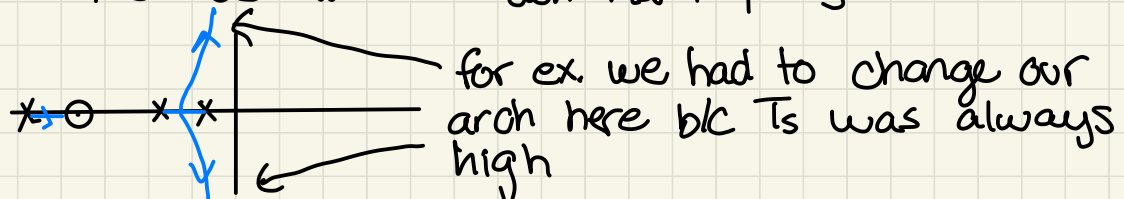 for ex. we had to change our
arch here b/c Ts was always
high